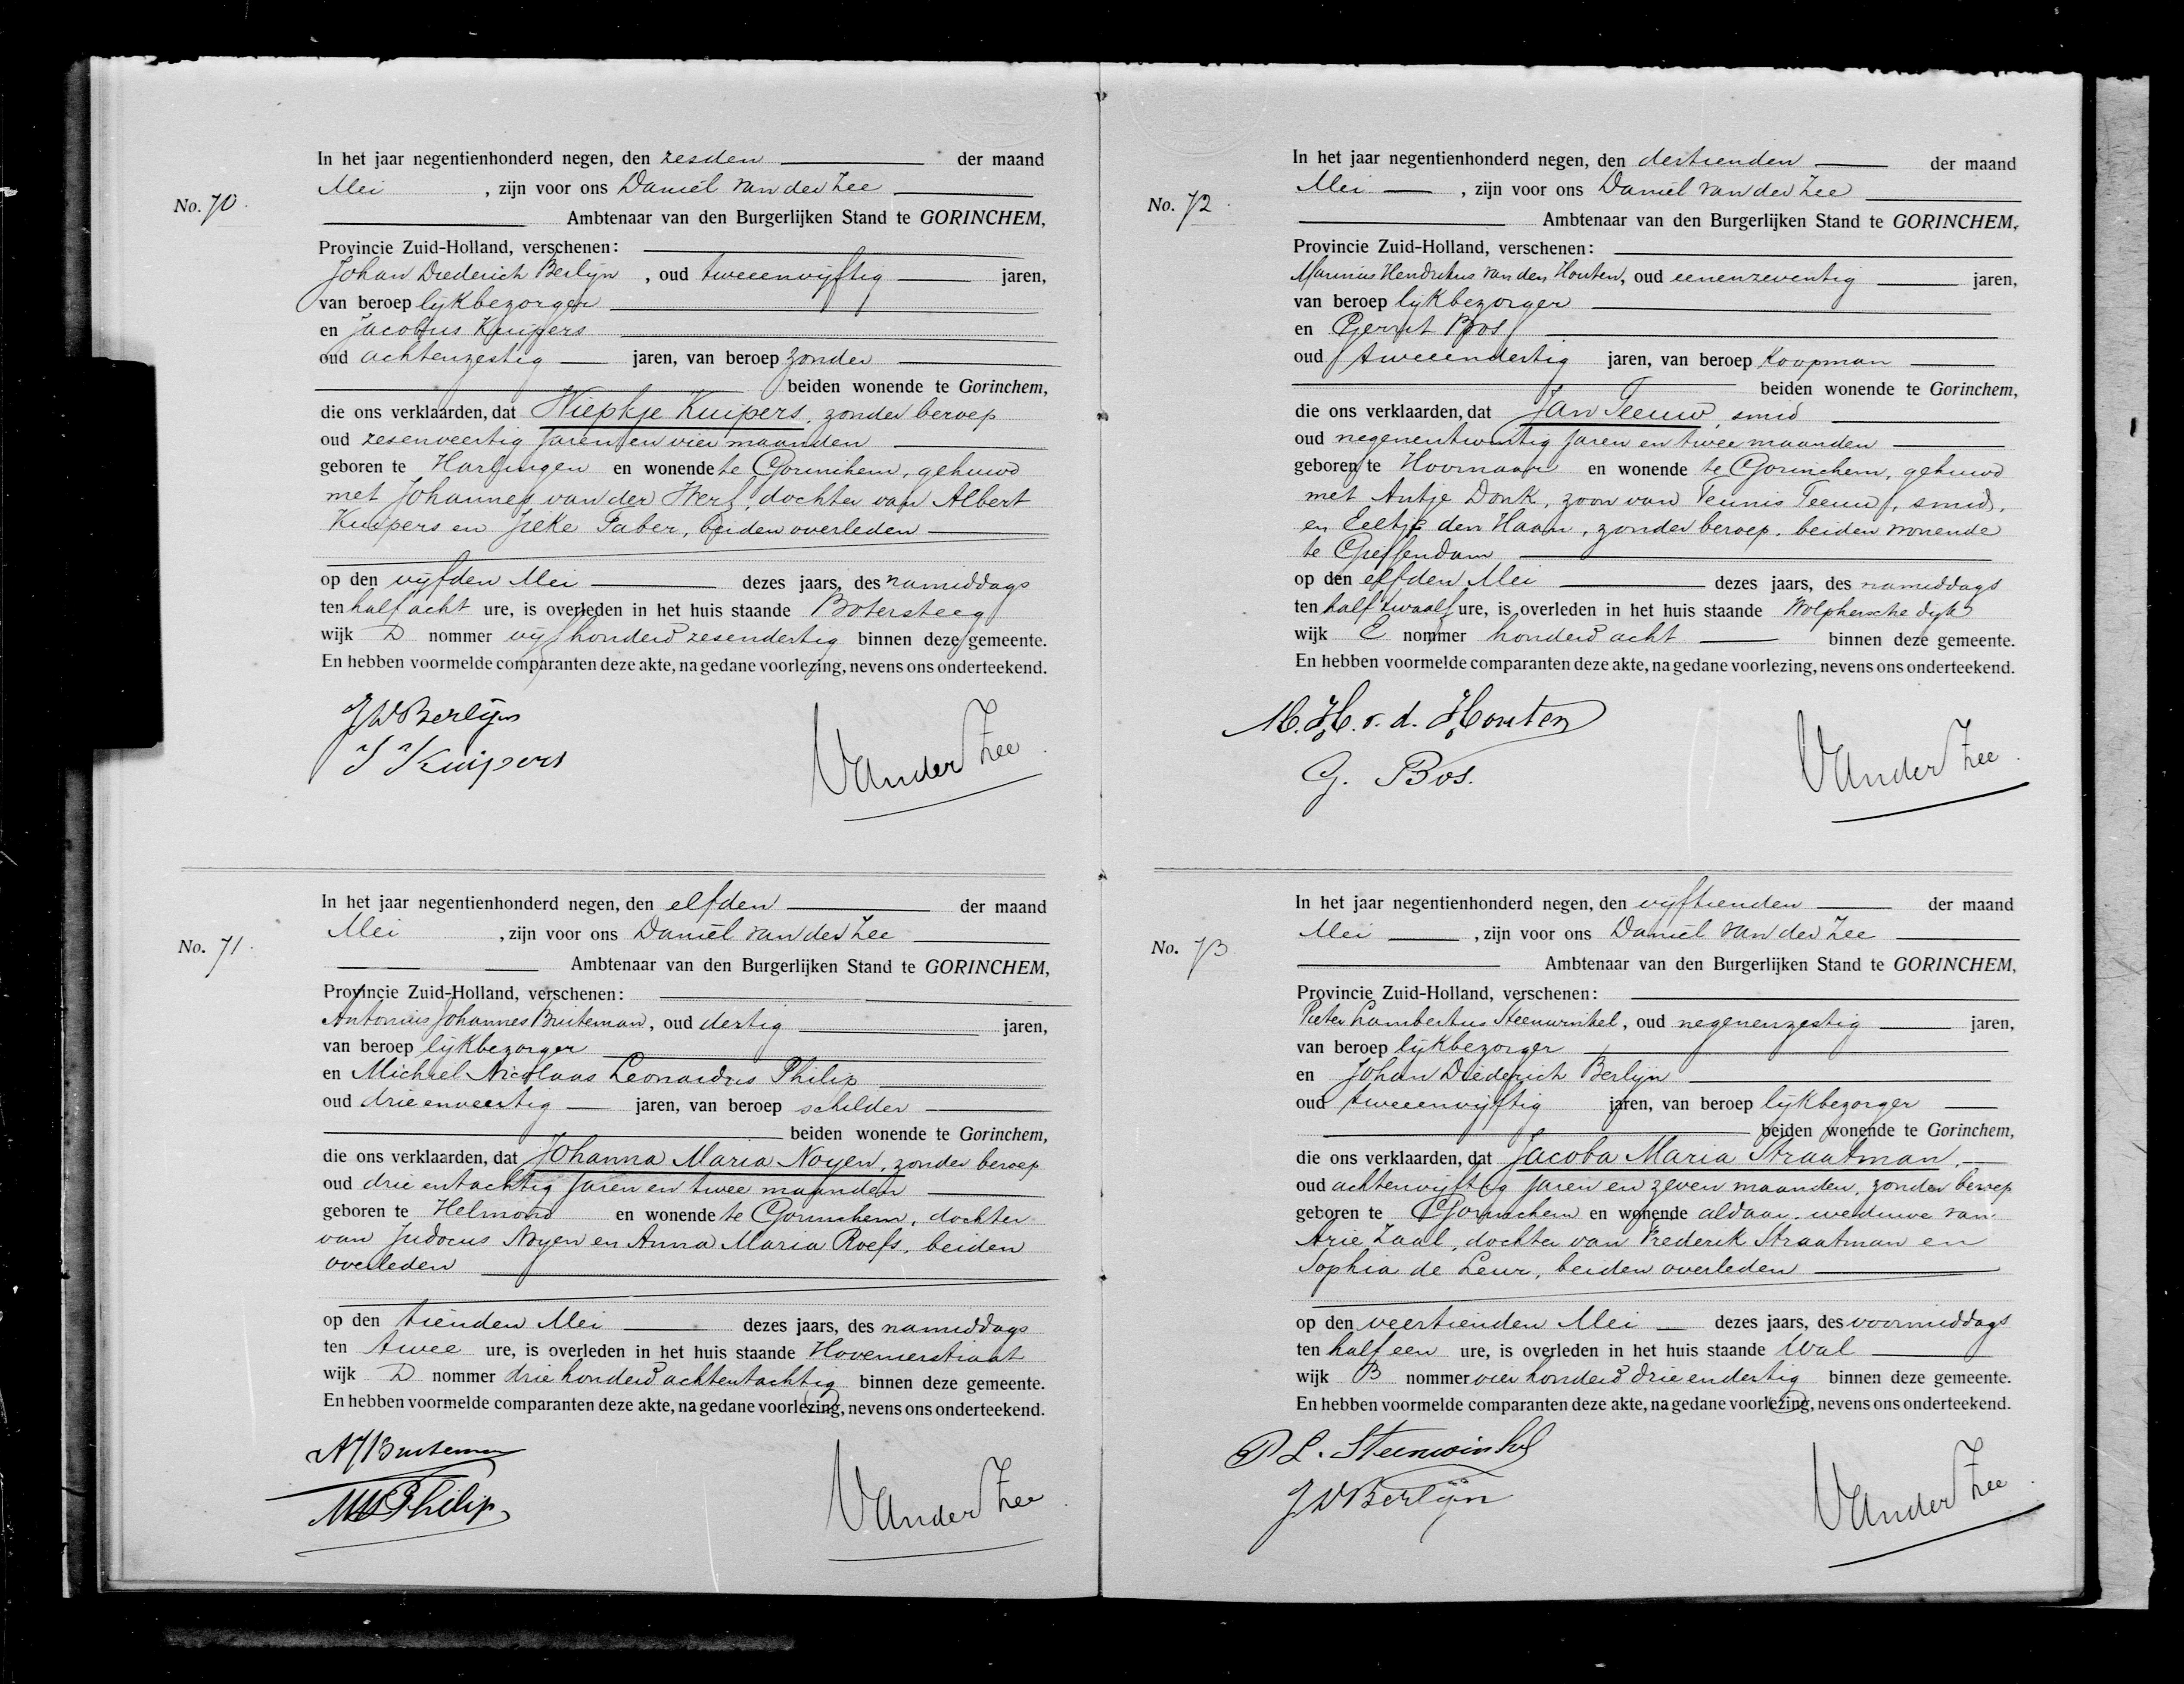 No. 70.
In het jaar negentienhonderd negen, den zesden der maand
Mei, zijn voor ons Daniël van der Zee
Ambtenaar van den Burgerlijken Stand te GORINCHEM,
Provincie Zuid-Holland, verschenen:
Johan Diederich Berlijn, oud tweeenvijftig jaren,
van beroep lijkbezorger
en Jacobus Kuipers
oud achtenzestig jaren, van beroep zonder
beiden wonende te Gorinchem,
die ons verklaarden, dat Wiepkje Kuipers, zonder beroep
oud zesenveertig jaren en vier maanden
geboren te Harlingen en wonende te Gorinchem, gehuwd
met Johannes van der Werf, dochter van Albert
Kuipers en Jieke Faber, beiden overleden
op den vijfden Mei dezes jaars, des namiddags
ten half acht ure, is overleden in het huis staande Botersteeg
wijk D nommer vijfhonderd zesendertig binnen deze gemeente.
En hebben voormelde comparanten deze akte, na gedane voorlezing, nevens ons onderteekend.
JD Berlijn
J Kuipers
Vander Zee
No. 71.
In het jaar negentienhonderd negen, den elfden der maand
Mei, zijn voor ons Daniël van der Zee
Ambtenaar van den Burgerlijken Stand te GORINCHEM,
Provincie Zuid-Holland, verschenen:
Antonius Johannes Bruteman, oud dertig jaren,
van beroep lijkbezorger
en Michiel Nicolaas Leonardus Philip
oud drieenveertig jaren, van beroep schilder
beiden wonende te Gorinchem,
die ons verklaarden, dat Johanna Maria Noyen, zonder beroep
oud drie entachtig jaren en twee maanden
geboren te Helmond en wonende te Gorinchem, dochter
van Judocus Noyen en Anna Maria Roefs, beiden
overleden
op den tienden Mei dezes jaars, des namiddags
ten twee ure, is overleden in het huis staande Hovenierstraat
wijk D nommer driehonderd achtentachtig binnen deze gemeente.
En hebben voormelde comparanten deze akte, na gedane voorlezing, nevens ons onderteekend.
Philip
Vander Zee
No. 72.
In het jaar negentienhonderd negen, den dertienden der maand
Mei, zijn voor ons Daniël van der Zee
Ambtenaar van den Burgerlijken Stand te GORINCHEM,
Provincie Zuid-Holland, verschenen:
Marinus Hendrikus van den Houten, oud eenenzeventig jaren,
van beroep lijkbezorger
en Gerrit Bos
oud tweeendertig jaren, van beroep Koopman
beiden wonende te Gorinchem,
die ons verklaarden, dat Jan Teeuw, smid
oud negenentwintig jaren en twee maanden
geboren te Hoornaar en wonende te Gorinchem, gehuwd
met Antje Donk, zoon van Teunis Teeuw, smid,
en Eeltje den Haan, zonder beroep, beiden wonende
te Giessendam
op den elfden Mei dezes jaars, des namiddags
ten half twaalf ure, is overleden in het huis staande Wolphersche dijk
wijk E nommer honderd acht binnen deze gemeente.
En hebben voormelde comparanten deze akte, na gedane voorlezing, nevens ons onderteekend.
M. H. v. d. Houten
G. Bos.
Vander Zee.
No. 73
In het jaar negentienhonderd negen, den vijftienden der maand
Mei, zijn voor ons Daniël van der Zee
Ambtenaar van den Burgerlijken Stand te GORINCHEM,
Provincie Zuid-Holland, verschenen:
Pieter Lambertus Steenwinkel, oud negenenzestig jaren,
van beroep lijkbezorger
en Johan Diederich Berlijn
oud tweeenvijftig jaren, van beroep lijkbezorger
beiden wonende te Gorinchem,
die ons verklaarden, dat Jacoba Maria Straatman,
oud achtenvijftig jaren en zeven maanden, zonder beroep
geboren te Gorinchem en wonende aldaar, weduwe van
Arie Zaal, dochter van Frederik Straatman en
Sophia de Leur, beiden overleden
op den veertienden Mei dezes jaars, des voormiddags
ten half een ure, is overleden in het huis staande Wal
wijk B nommer vierhonderd drieendertig binnen deze gemeente.
En hebben voormelde comparanten deze akte, na gedane voorlezing, nevens ons onderteekend.
P L. Steenwinkel
JD Berlijn
Vander Zee.